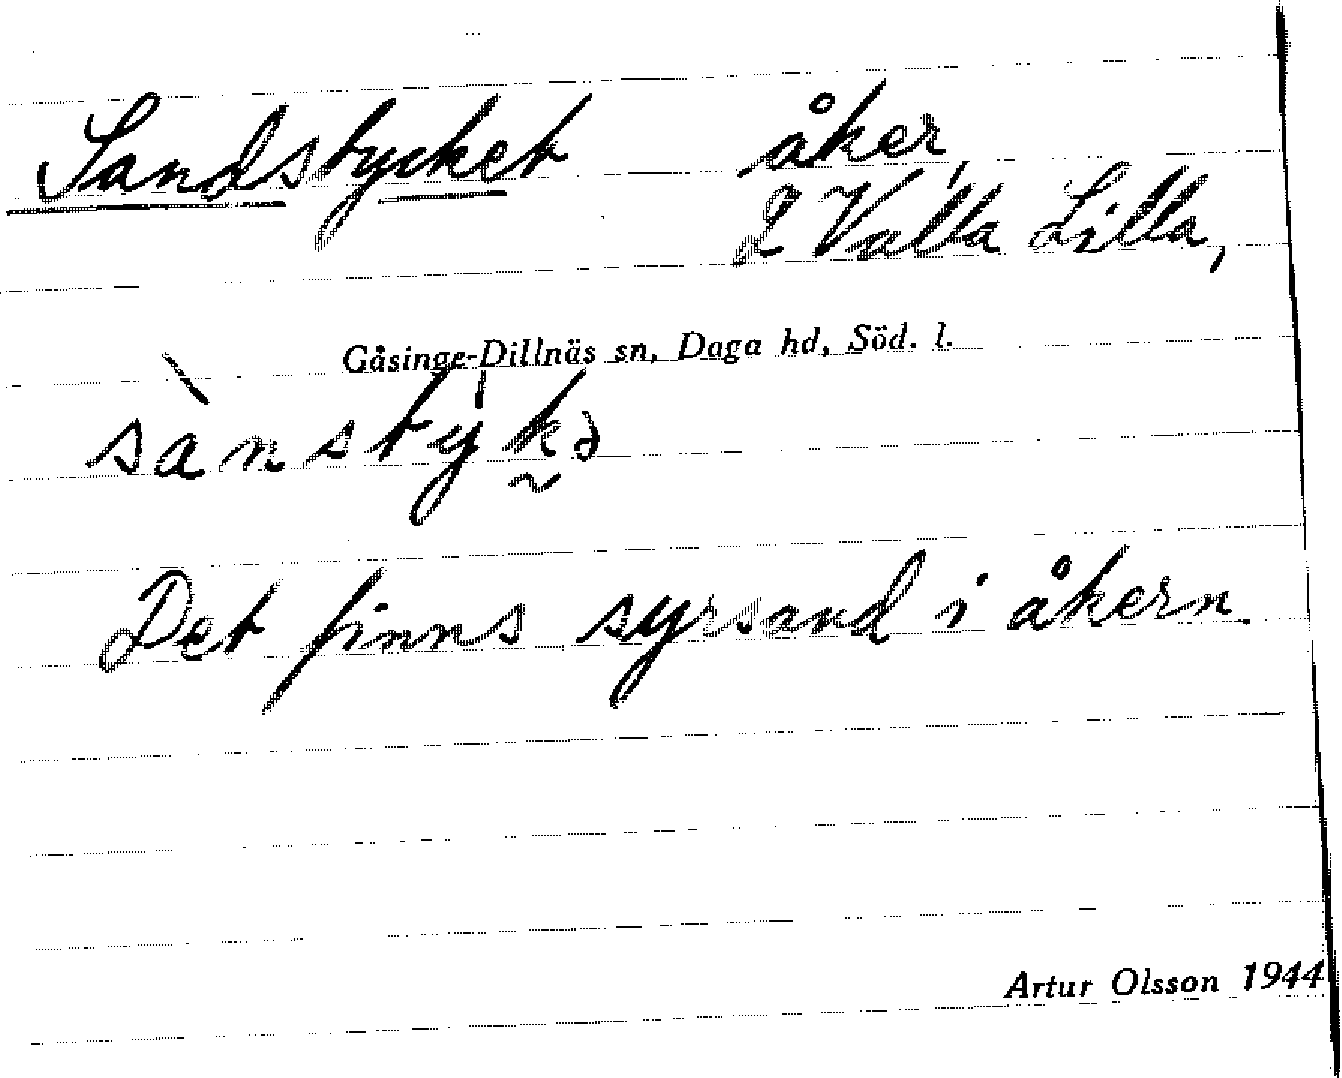 Sandstycket åker,
2 Valla Lilla,
Gåsinge-Dillnäs sn, Daga hd, Söd. l.
sànstỳk̰ə
Det finns syrsand i åkern.
Artur Olsson 1944